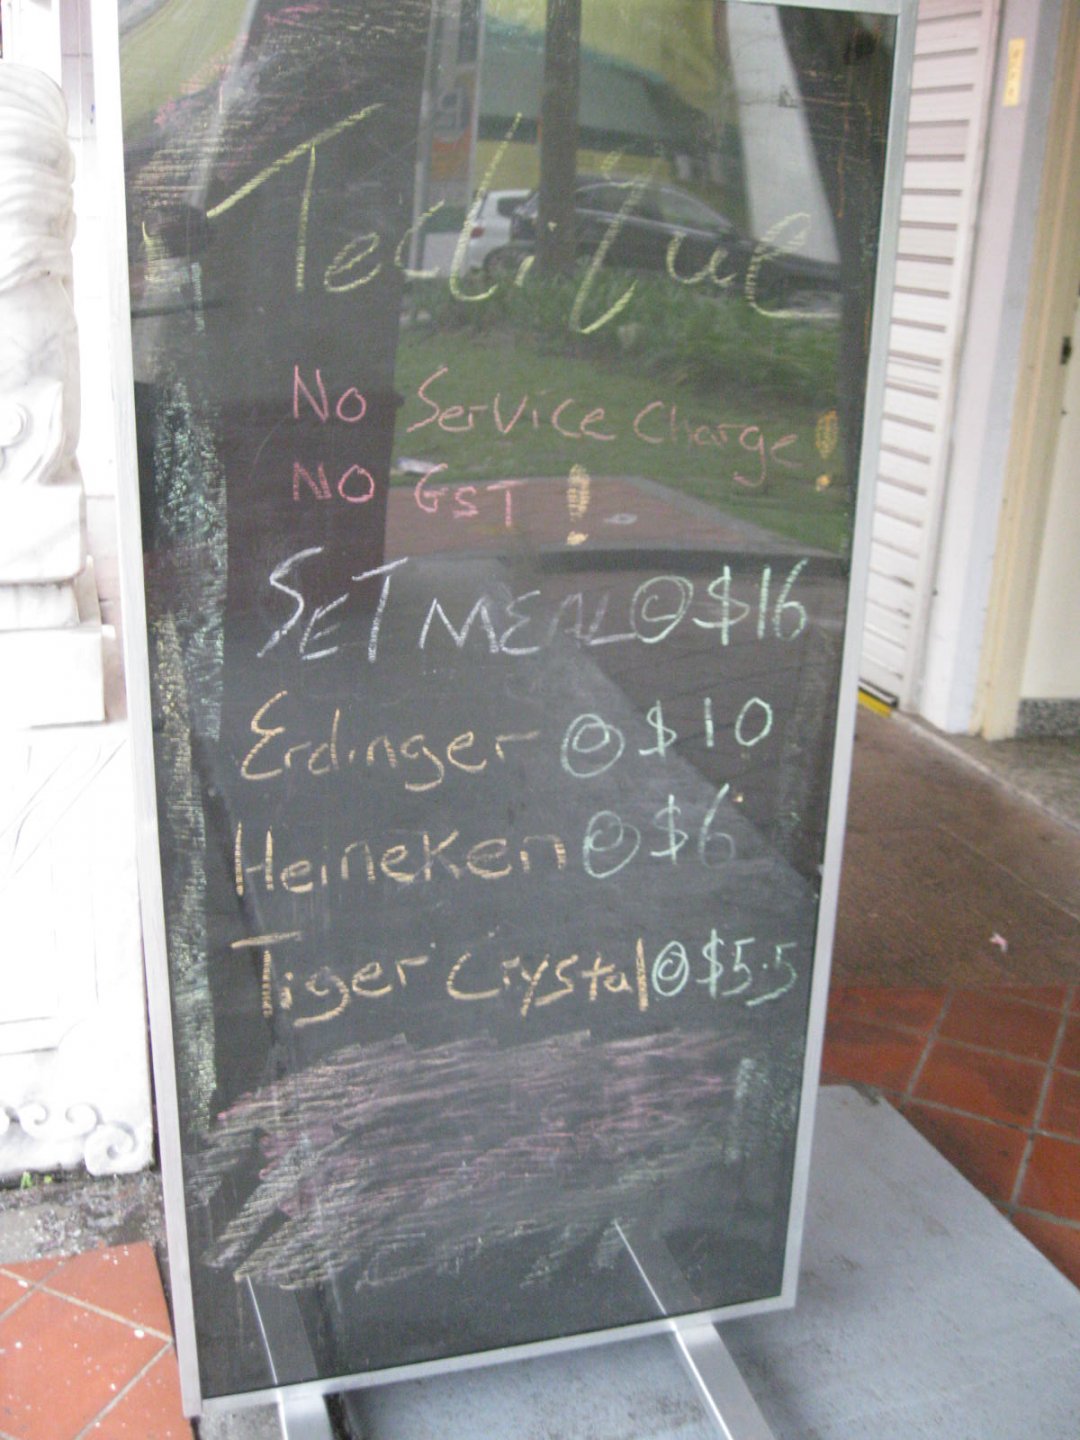 No Service Charge!
NO GST!
SET MEAL @ $16
Erdinger @ $10
Heineken @ $6
Tiger Crystal @ $5.5